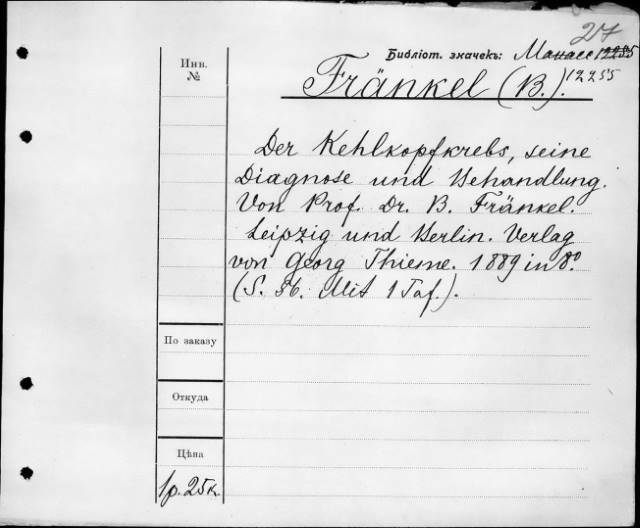 27
Библіот. значекъ: Манасс 12235
12255
Fränkel (B.).
Инв.
№
Der Kehlkopfkrebs, seine
Diagnose und Behandlung.
Von Prof. Dr. B. Fränkel.
Leipzig und Berlin. Verlag
von Georg Thieme. 1889 in 8º.
(S. 36. Mit 1 Taf.).
По заказу
Откуда
Цѣна
1р. 25к.